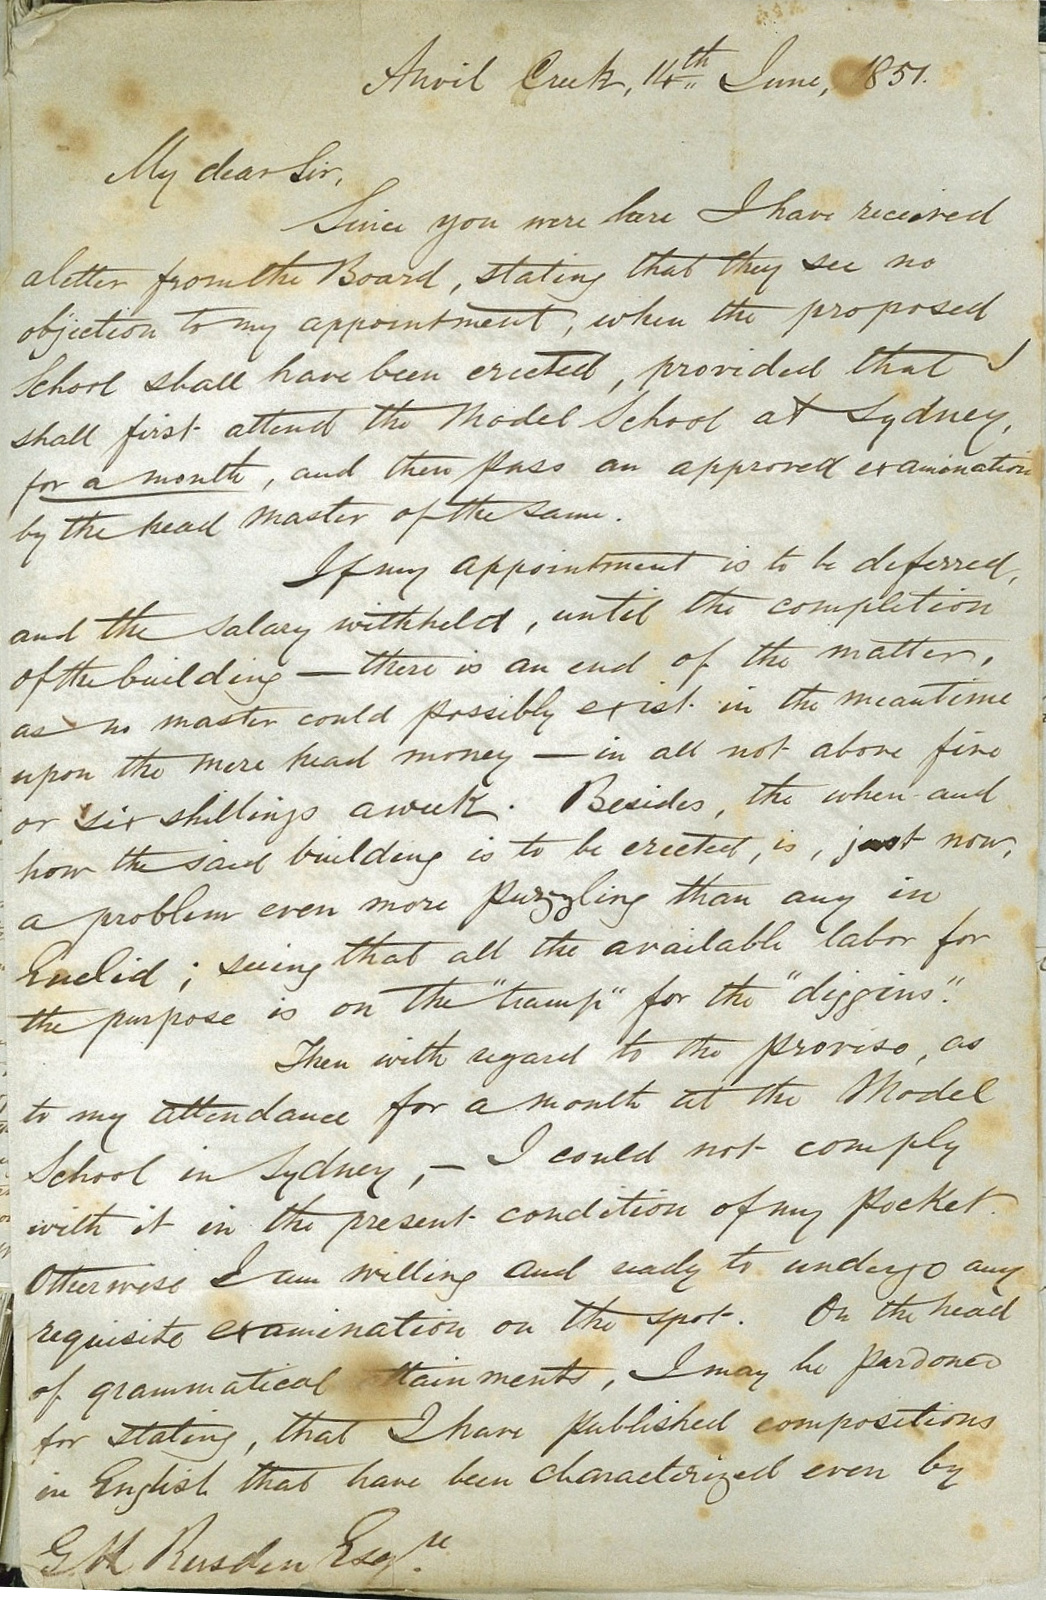 Anvil Creek, 14th June, 1851.
My dear Sir,
Since you were here I have received
a letter from the Board, stating that they see no
objection to my appointment, when the proposed
School shall have been erected, provided that I
shall first attend the Model School at Sydney,
for a month, and then pass an approved examination
by the head Master of the same.
If my appointment is to be deferred,
and the salary withheld, until the completion
of the building — there is an end of the matter,
as no master could possibly exist in the meantime
upon the mere head money — in all not above five
or six shillings a week. Besides, the when and
how the said building is to be erected, is, just now,
a problem even more puzzling than any in
Euclid; seeing that all the available labor for
the purpose is on the "tramp" for the "diggins".
Then with regard to the proviso, as
to my attendance for a month at the Model
School in Sydney, — I could not comply
with it in the present condition of my pocket.
Otherwise I am willing and ready to undergo any
requisite examination on the spot. On the head
of grammatical attainments, I may be pardoned
for stating, that I have published compositions
in English that have been characterized even by
G H Rusden Esqre.